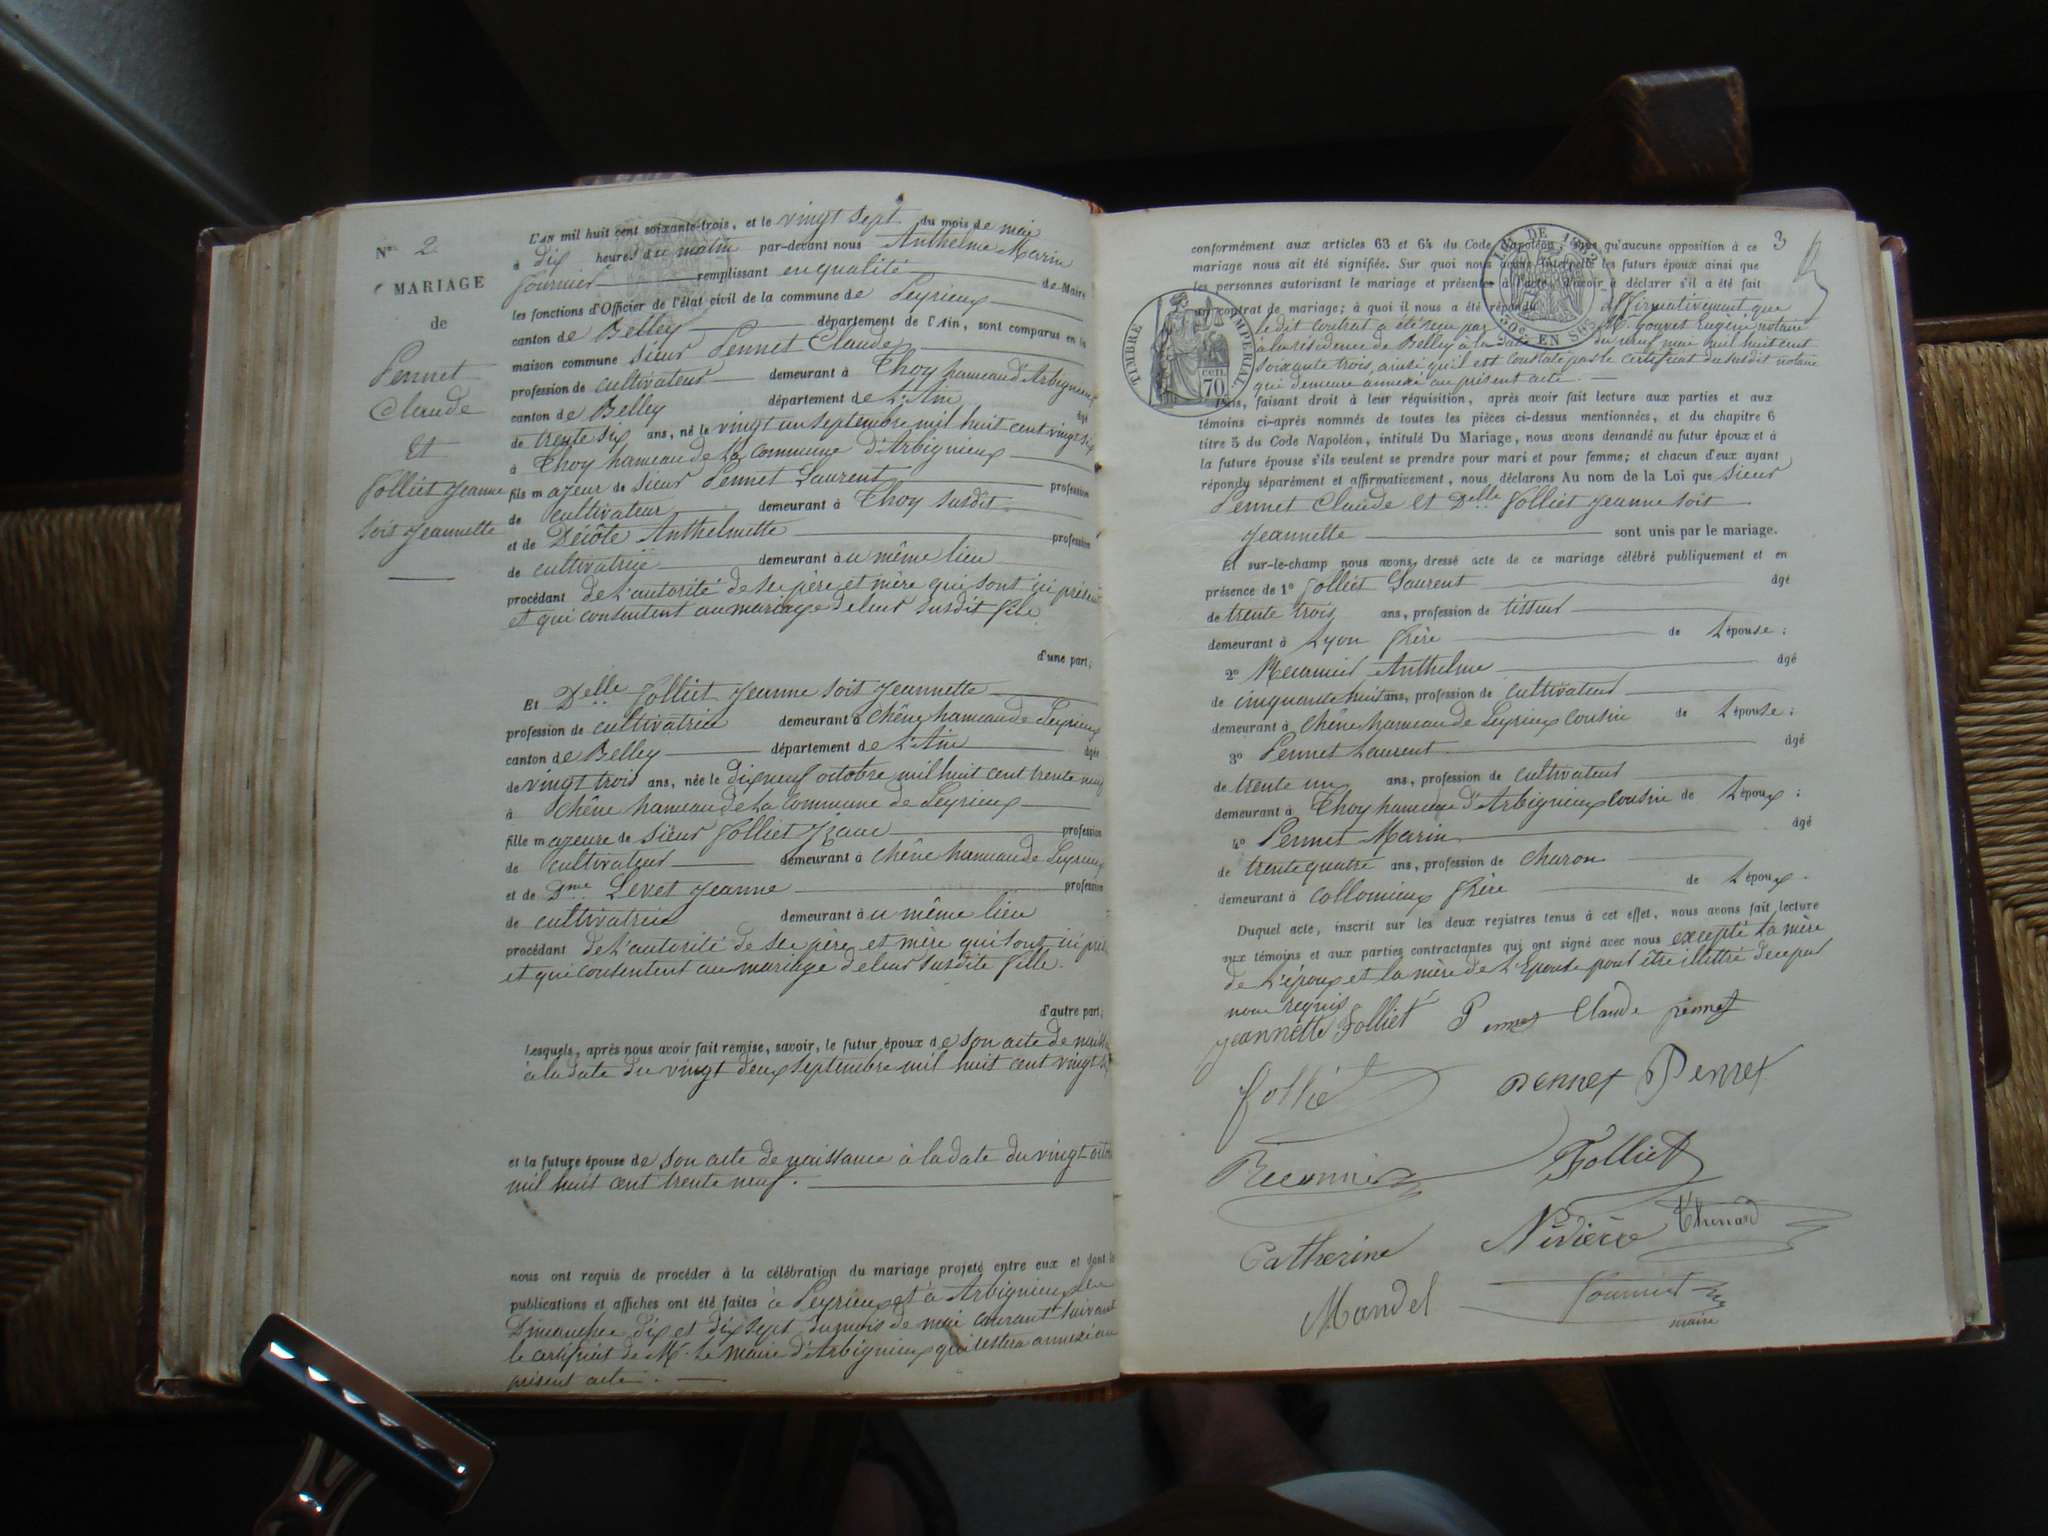 N° 2
MARIAGE
de
Pennet
Claude
et
Folliet Jeanne
soit Jeannette
L'AN mil huit cent soixante-trois, et le vingt sept du mois de mai
à dix heures du matin par-devant nous Anthelme Marin
Fournier remplissant en qualité de Maire
les fonctions d'Officier de l'état civil de la commune de Peyrieux
canton de Belley département de l'Ain, sont comparus en la
maison commune sieur Pennet Claude
profession de cultivateur demeurant à Thoy hameau d'Arbignieux
canton de Belley département de L'Ain âgé
de trente six ans, né le vingt un septembre mil huit cent vingt six
à Thoy hameau de la commune d'Arbignieux
fils majeur de sieur Pennet Laurent profession
de cultivateur demeurant à Thoy susdit
et de Décôte Anthelmette profession
de cultivatrice demeurant au même lieu
procédant de l'autorité de ses père et mère qui sont ici présents
et qui consentent au mariage de leur susdit fils
d'une part;
Et Delle Folliet Jeanne soit Jeannette
profession de cultivatrice demeurant à Chêne hameau de Peyrieux
canton de Belley département de L'Ain âgée
de vingt trois ans, née le dix neuf octobre mil huit cent trente neuf
à Chêne hameau de la commune de Peyrieux
fille majeure de sieur Folliet profession
de cultivateur demeurant à Chêne hameau de Peyrieux
et de Dme Levet Jeanne profession
de cultivatrice demeurant au même lieu
procédant de l'autorité de ses père et mère qui sont ici prés
et qui consentent au mariage de leur susdite fille.
d'autre part;
Lesquels, après nous avoir fait remise, savoir, le futur époux de son acte de naiss
à la date du vingt deux septembre mil huit cent vingt s
et la future épouse de son acte de naissance à la date du vingt octo
mil huit cent trente neuf.
nous ont requis de procéder à la célébration du mariage projeté entre eux et dont les
publications et affiches ont été faites à Peyrieux et à Arbignieux les
Dimanches dix et dix sept du mois de mai courant suivant
le certificat de Mr. le Maire d'Arbignieux qui restera annexé au
présent acte.
3
conformément aux articles 63 et 64 du Code Napoléon, sans qu'aucune opposition à ce
mariage nous ait été signifiée. Sur quoi nous avons interpellé les futurs époux ainsi que
les personnes autorisant le mariage et présentes à l'acte, d'avoir à déclarer s'il a été fait
un contrat de mariage; à quoi il nous a été répondu affirmativement que
le dit contrat a été reçu par M. Gouvet Eugène notaire
à la résidence de Belley à la date du neuf mai mil huit cent
soixante trois, ainsi qu'il est constaté par le certificat du susdit notaire
qui demeure annexé au présent acte.
TIMBRE IMPERIAL
70 cen
EN SUS
Puis, faisant droit à leur réquisition, après avoir fait lecture aux parties et aux
témoins ci-après nommés de toutes les pièces ci-dessus mentionnées, et du chapitre 6
titre 5 du Code Napoléon, intitulé Du Mariage, nous avons demandé au futur époux et à
la future épouse s'ils veulent se prendre pour mari et pour femme; et chacun d'eux ayant
répondu séparément et affirmativement, nous déclarons Au nom de la Loi que sieur
Pennet Claude et Delle Folliet Jeanne soit
Jeannette sont unis par le mariage.
Et sur-le-champ nous avons dressé acte de ce mariage célébré publiquement et en
présence de 1° Folliet Laurent âgé
de trente trois ans, profession de tisseur
demeurant à Lyon frère de L'épouse;
2° Récamier Anthelme âgé
de cinquante huit ans, profession de cultivateur
demeurant à Chêne hameau de Peyrieux cousin de L'épouse;
3° Pennet Laurent âgé
de trente un ans, profession de cultivateur
demeurant à Thoy hameau d'Arbignieux cousin de L'époux;
4° Pennet Marin âgé
de trente quatre ans, profession de charon
demeurant à Collomieux frère de L'époux.
Duquel acte, inscrit sur les deux registres tenus à cet effet, nous avons fait lecture
aux témoins et aux parties contractantes qui ont signé avec nous excepté la mère
de L'époux et la mère de L'épouse pour être illettré de ce par
nous requis
Jeannette Folliet Pennet Claude pennet
follié pennet Pennet
Récamier Folliet
Catherine Nivière Thenard
Mandel Fournier
maire